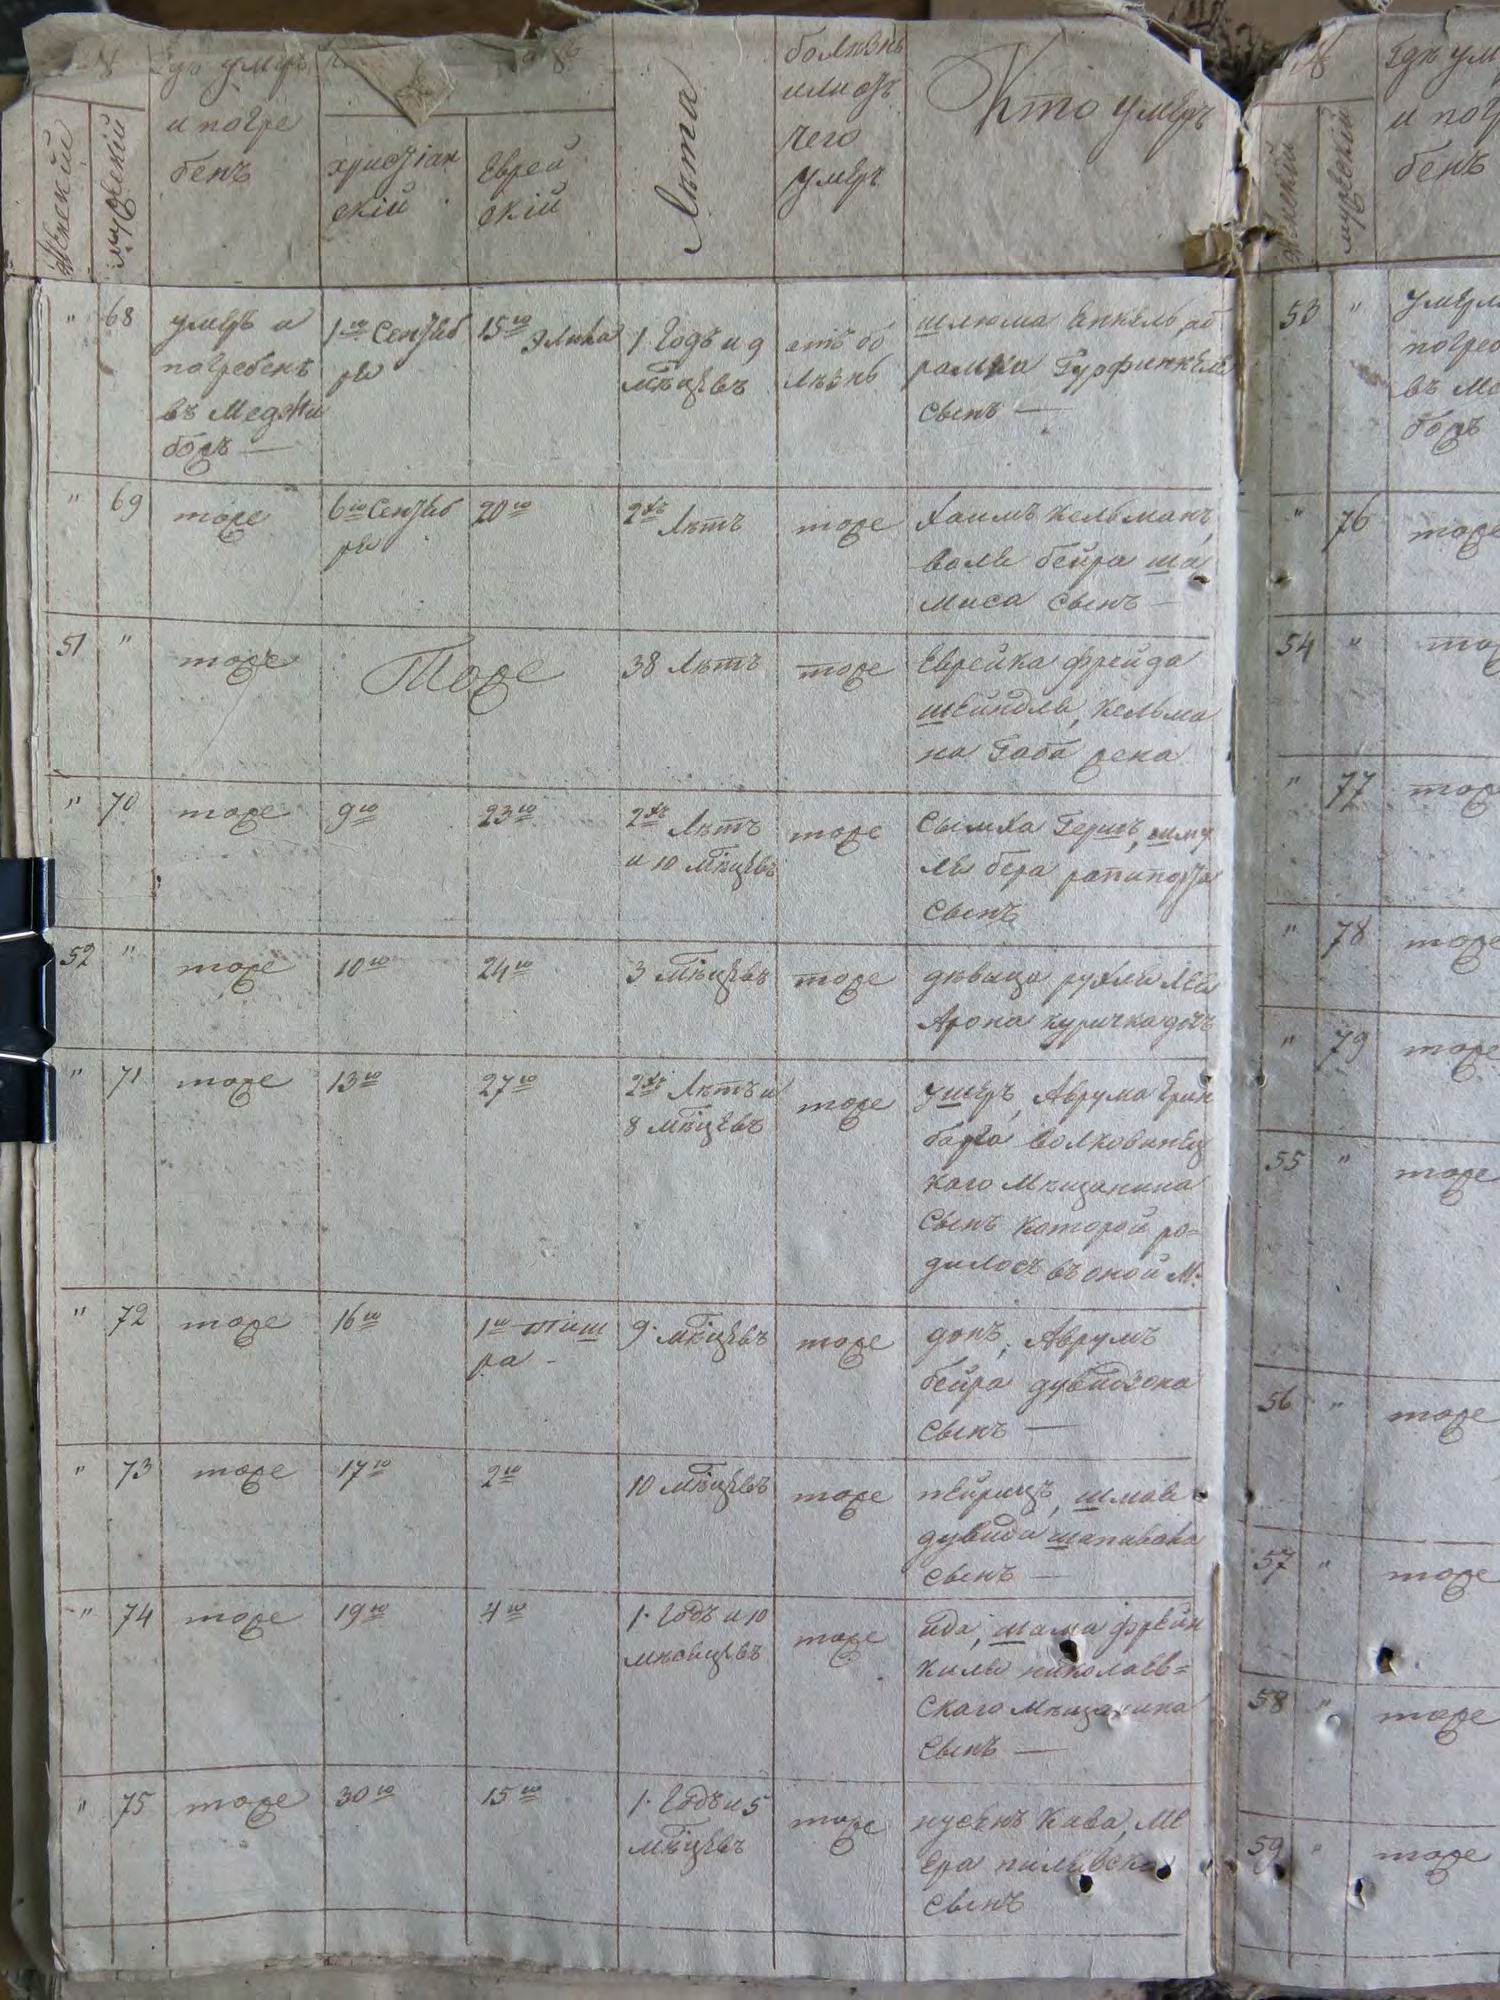 № Гдѣ умеръ
и погре
бенъ
Женскій
мужескій
христіан
скій
Еврей
скій
Лѣта
болѣзнь
или отъ
чего
умеръ
Кто умеръ
" 68 умеръ и
погребенъ
въ Меджи
божъ —
1го Сентяб
ря
15го Элила
1 Годъ и 9
мѣцевъ
отъ бо
лѣзнь
шлюма Енкель, аб
рамка Гурфинкеля
сынъ —
" 69 тоже
6го Сентяб
ря
20го
2хъ Лѣтъ
тоже
Хаимъ Кельманъ,
воля бейра ша
миса сынъ —
51 " тоже
Тоже
38 Лѣтъ
тоже
Еврейка фрейда
шейндля, Кельма
на
" 70 тоже
9го
23го
2хъ Лѣтъ
и 10 мѣцевъ
тоже
Сымха Гершъ, шму
ля бера рапипорта
сынъ
52 " тоже
10го
24го
3 мѣцевъ
тоже
дѣвица рухля лея
Арона куричка дочь
" 71 тоже
13го
27го
2хъ Лѣтъ и
8 мѣцевъ
тоже
ушеръ, Аврума Грин
барга волковинец
каго мѣщанина
сынъ которой ро=
дилось въ оной М.
" 72 тоже
16го
1го тиш
ра -
9. мѣцевъ
тоже
донъ, Аврумъ
бейра дувидзона
сынъ —
" 73 тоже
17го
2го
10 мѣцевъ
тоже
пейрицъ, шмая
дувида
сынъ —
" 74 тоже
19го
4го
1. Годъ и 10
мѣсяцевъ
тоже
ида, шама френ
киля николаев=
скаго мѣщанина
сынъ —
" 75 тоже
30го
15го
1. Годъ и 5
мѣцевъ
тоже
нусенъ Кава, Ме
ера пилявска
сынъ
№ Гдѣ ум
и погр
бенъ
Женскій
мужескій
53 " умерл
погреб
въ Ме
божъ
" 76 тоже
54 " то
" 77 тоже
" 78 тоже
" 79 тоже
55 " тоже
56 " тоже
57 " тоже
58 " тоже
59 " тоже